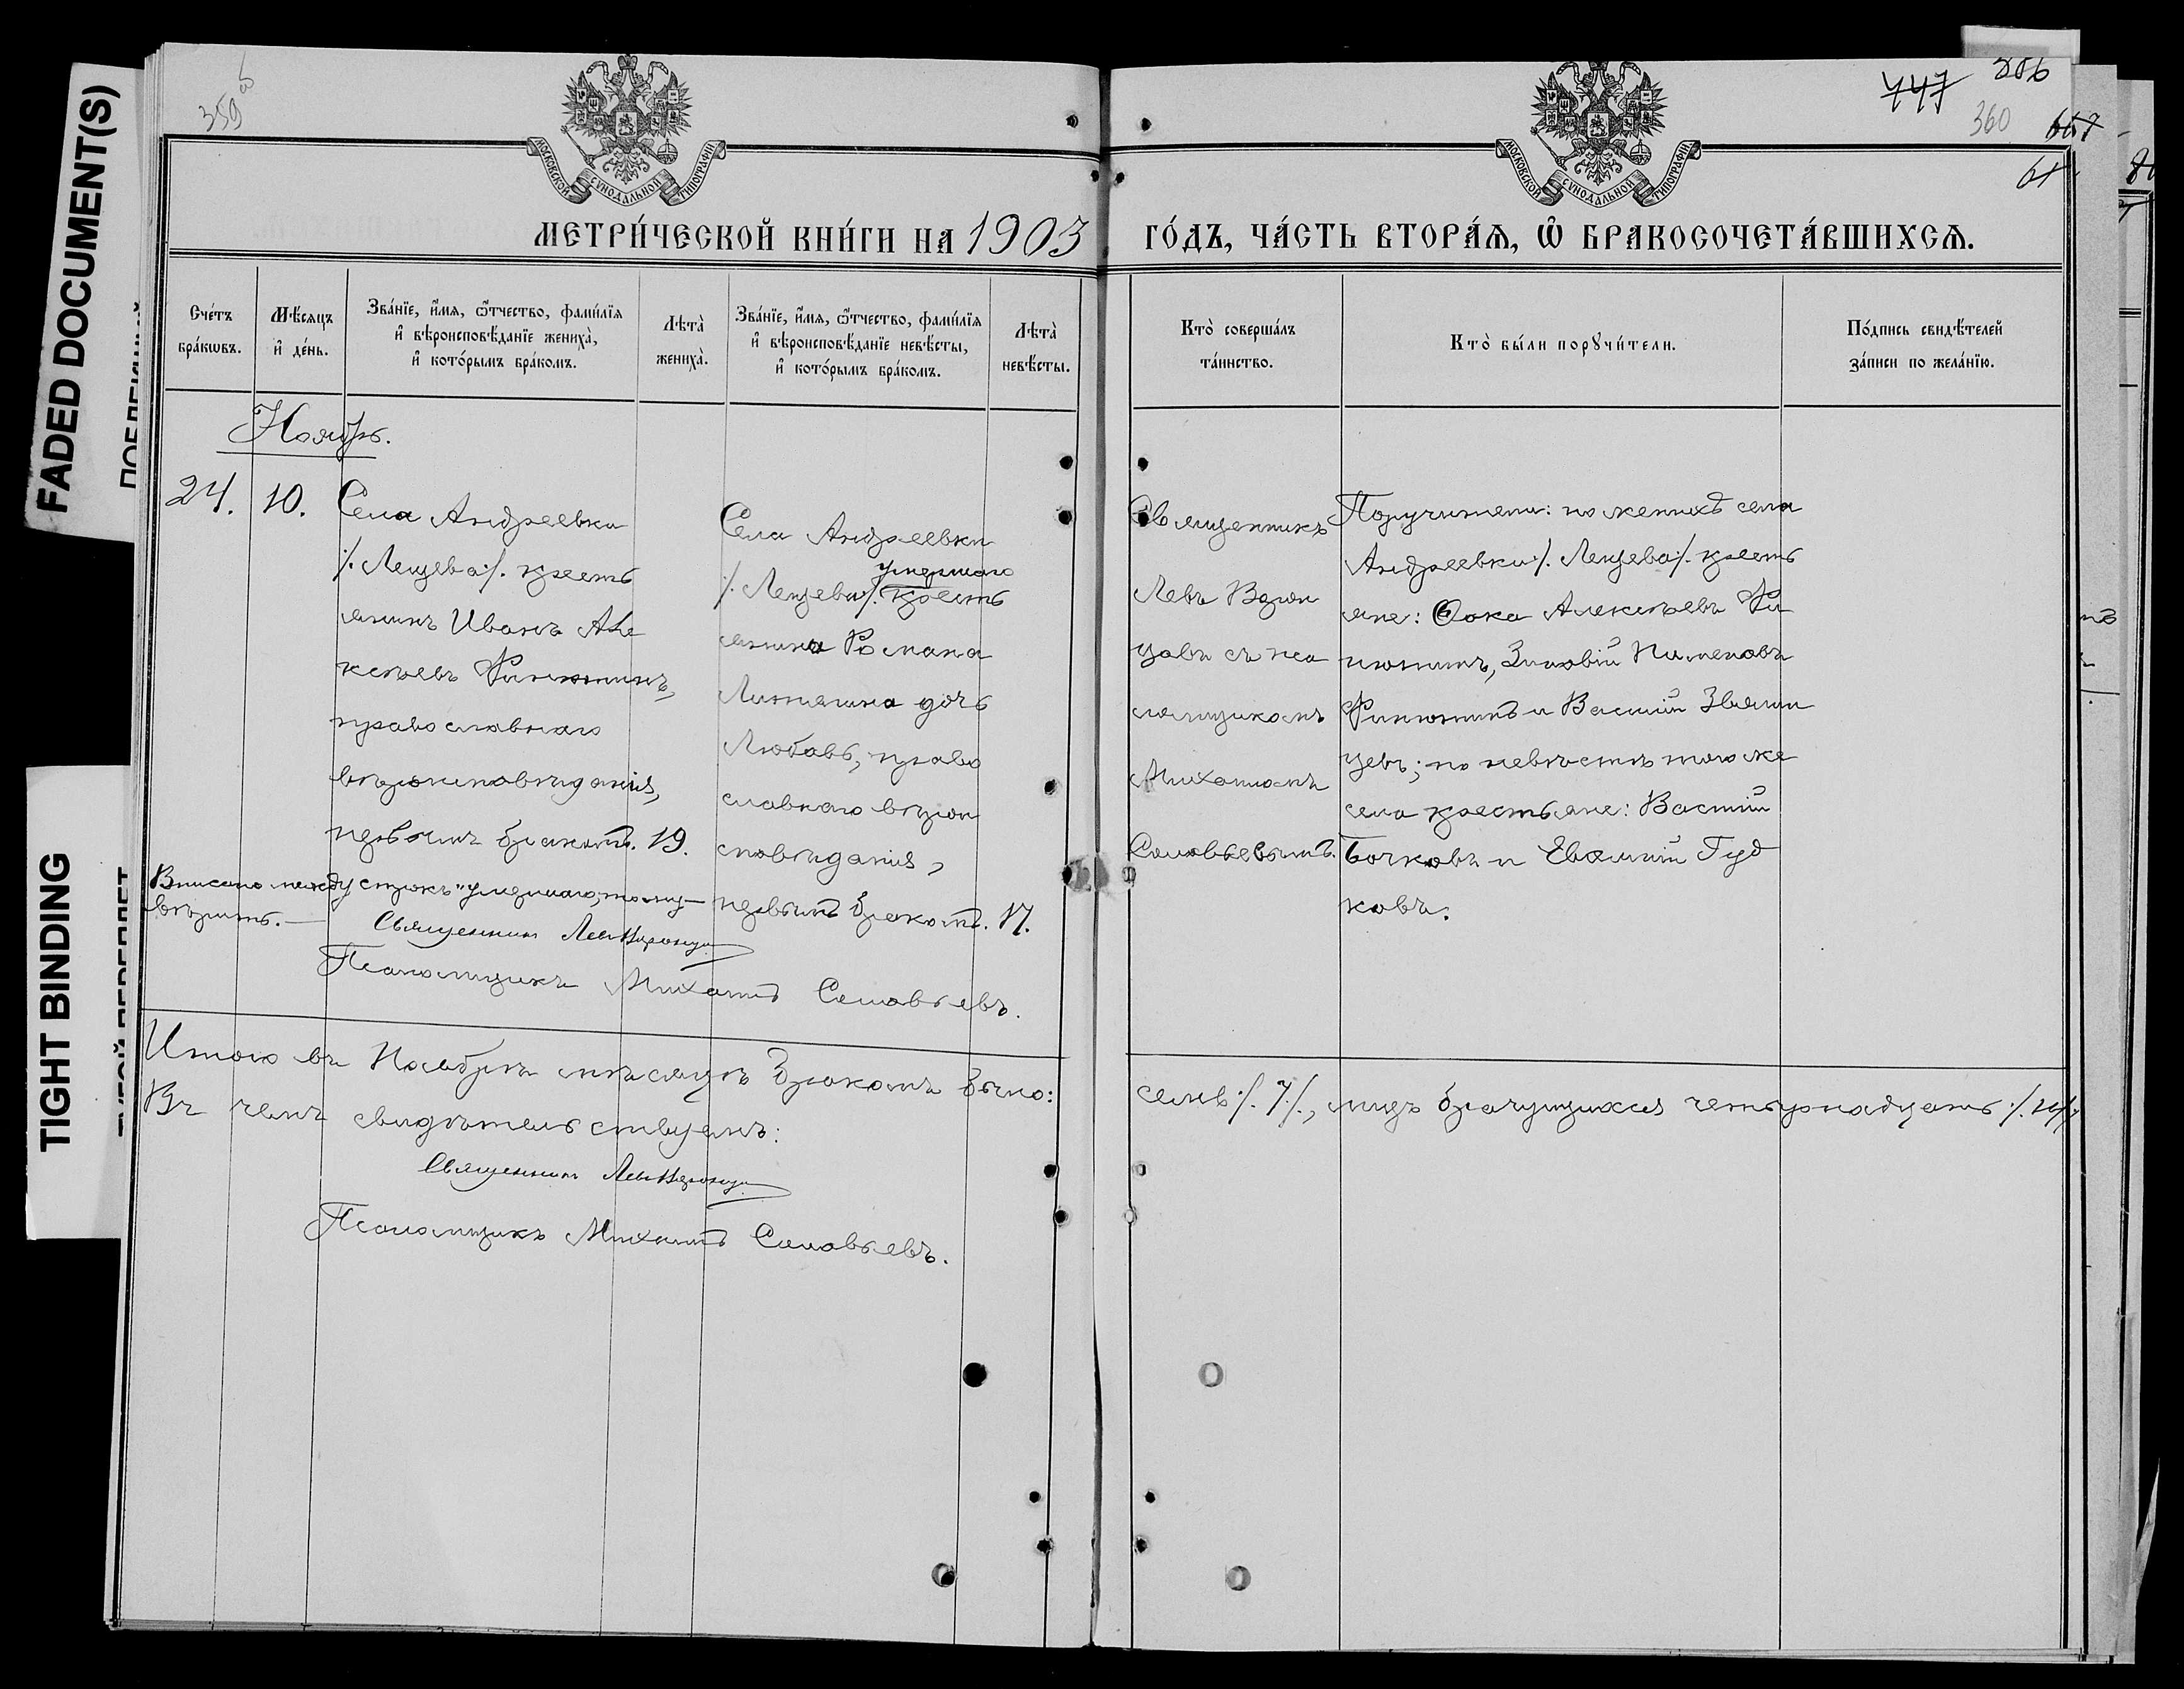 FADED DOCUMENT(S)
TIGHT BINDING
359 об
747 306
360 657
61
МОСКОВСКОЙ СѴНОДАЛЬНОЙ ТИПОГРАФІИ
МОСКОВСКОЙ СѴНОДАЛЬНОЙ ТИПОГРАФІИ
МЕТРИ́ЧЕСКОЙ КНИ́ГИ НА 1903 ГО́ДЪ, ЧА́СТЬ ВТОРА́Ѧ, Ѡ҆ БРАКОСОЧЕТА́ВШИХСѦ.
Сче́тъ
бра́кѡвъ.
Мѣ́сѧцъ
и҆ де́нь.
Зва́нїе, и҆́мѧ, ѻ҆́тчество, фами́лїѧ
и҆ вѣроисповѣ́данїе жениха̀,
и҆ кото́рымъ бра́комъ.
Лѣта̀
жениха̀.
Зва́нїе, и҆́мѧ, ѻ҆́тчество, фами́лїѧ
и҆ вѣроисповѣ́данїе невѣ́сты,
и҆ кото́рымъ бра́комъ.
Лѣта̀
невѣ́сты.
Кто̀ соверша́лъ
та́инство.
Кто̀ бы́ли порꙋчи́тели.
По́дпись свидѣ́телей
за́писи по жела́нїю.
Ноябрь.
24. 10.
Села Андреевки
/. Лещева ./. кресть
янинъ Иванъ Але
ксѣевъ Финютинъ,
православнаго
вѣроисповѣданія,
первымъ бракомъ. 19.
Села Андреевки
умершаго
/. Лещева ./. кресть
янина Романа
дочь
Любовь, право
славнаго вѣрои
сповѣданія,
первымъ бракомъ. 17.
Священникъ
Левъ
цовъ съ пса
ломщикомъ
Михаиломъ
Соловьевымъ.
Поручители: по женихѣ села
Андреевки /. Лещева ./. кресть
яне: Ѳока Алексѣевъ Фи
нютинъ, Зиновій Пименовъ
Финютинъ и Василій Звягин
цевъ; по невѣстѣ того же
села крестьяне: Василій
Бочковъ и Евѳимій Гуд
ковъ.
Вписано между строкъ "умершаго", тому
вѣрить.
Священникъ Левъ
Псаломщикъ Михаилъ Соловьевъ.
Итого въ Ноябрѣ мѣсяцѣ бракомъ было: семь /. 7 ./., лицъ брачущихся четырнадцать /. 14 ./.
Въ чемъ свидѣтельствуемъ:
Священникъ Левъ
Псаломщикъ Михаилъ Соловьевъ.